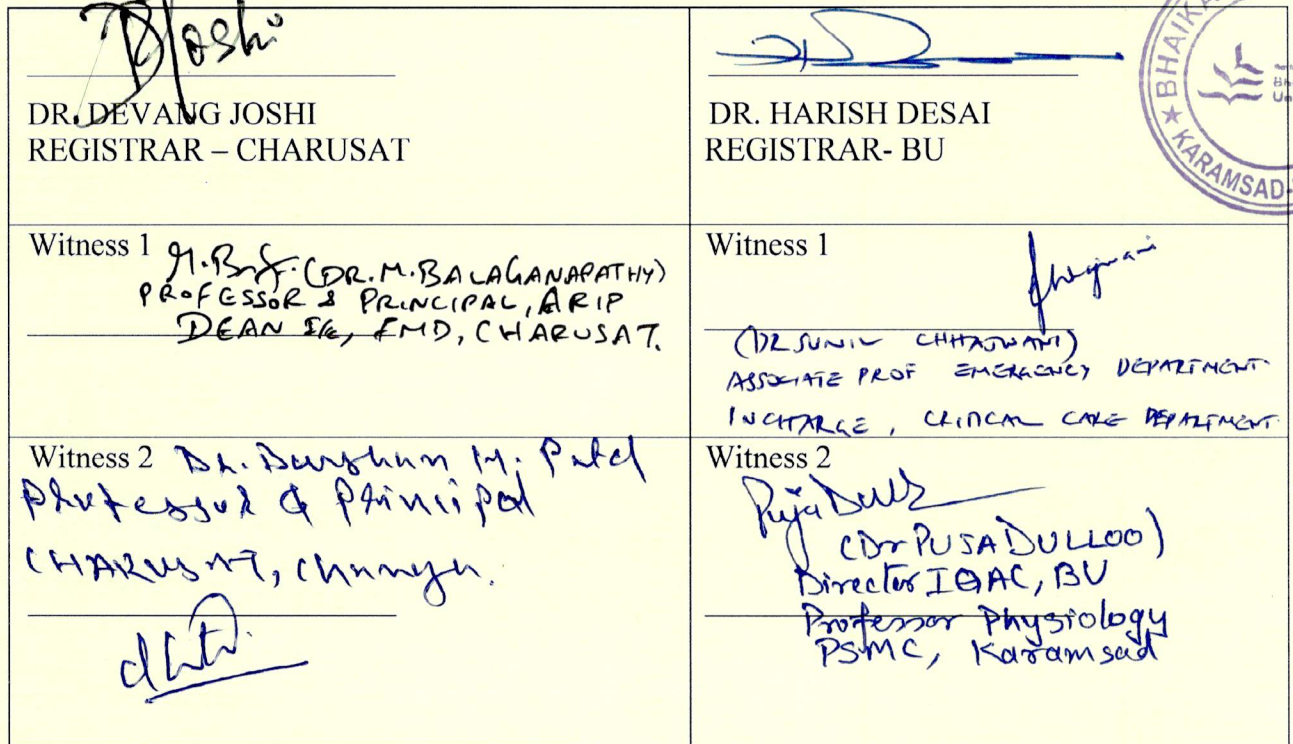 DJoshi
DR. DEVANG JOSHI
REGISTRAR – CHARUSAT
DR. HARISH DESAI
REGISTRAR- BU
BHAIKA
KARAMSAD
Witness 1
(DR. M. BALAGANAPATHY)
PROFESSOR & PRINCIPAL, ARIP
DEAN I/C, FMD, CHARUSAT.
Witness 1
(DR SUNIL CHHAJWANI)
ASSOCIATE PROF EMERGENCY DEPARTMENT
INCHARGE, CRITICAL CARE DEPARTMENT
Witness 2 Dr. Darshan M. Patel
Professor & Principal
CHARUSAT, Changa.
Witness 2
Puja Dull
(Dr PUJA DULLOO)
Director IQAC, BU
Professor Physiology
PSMC, Karamsad